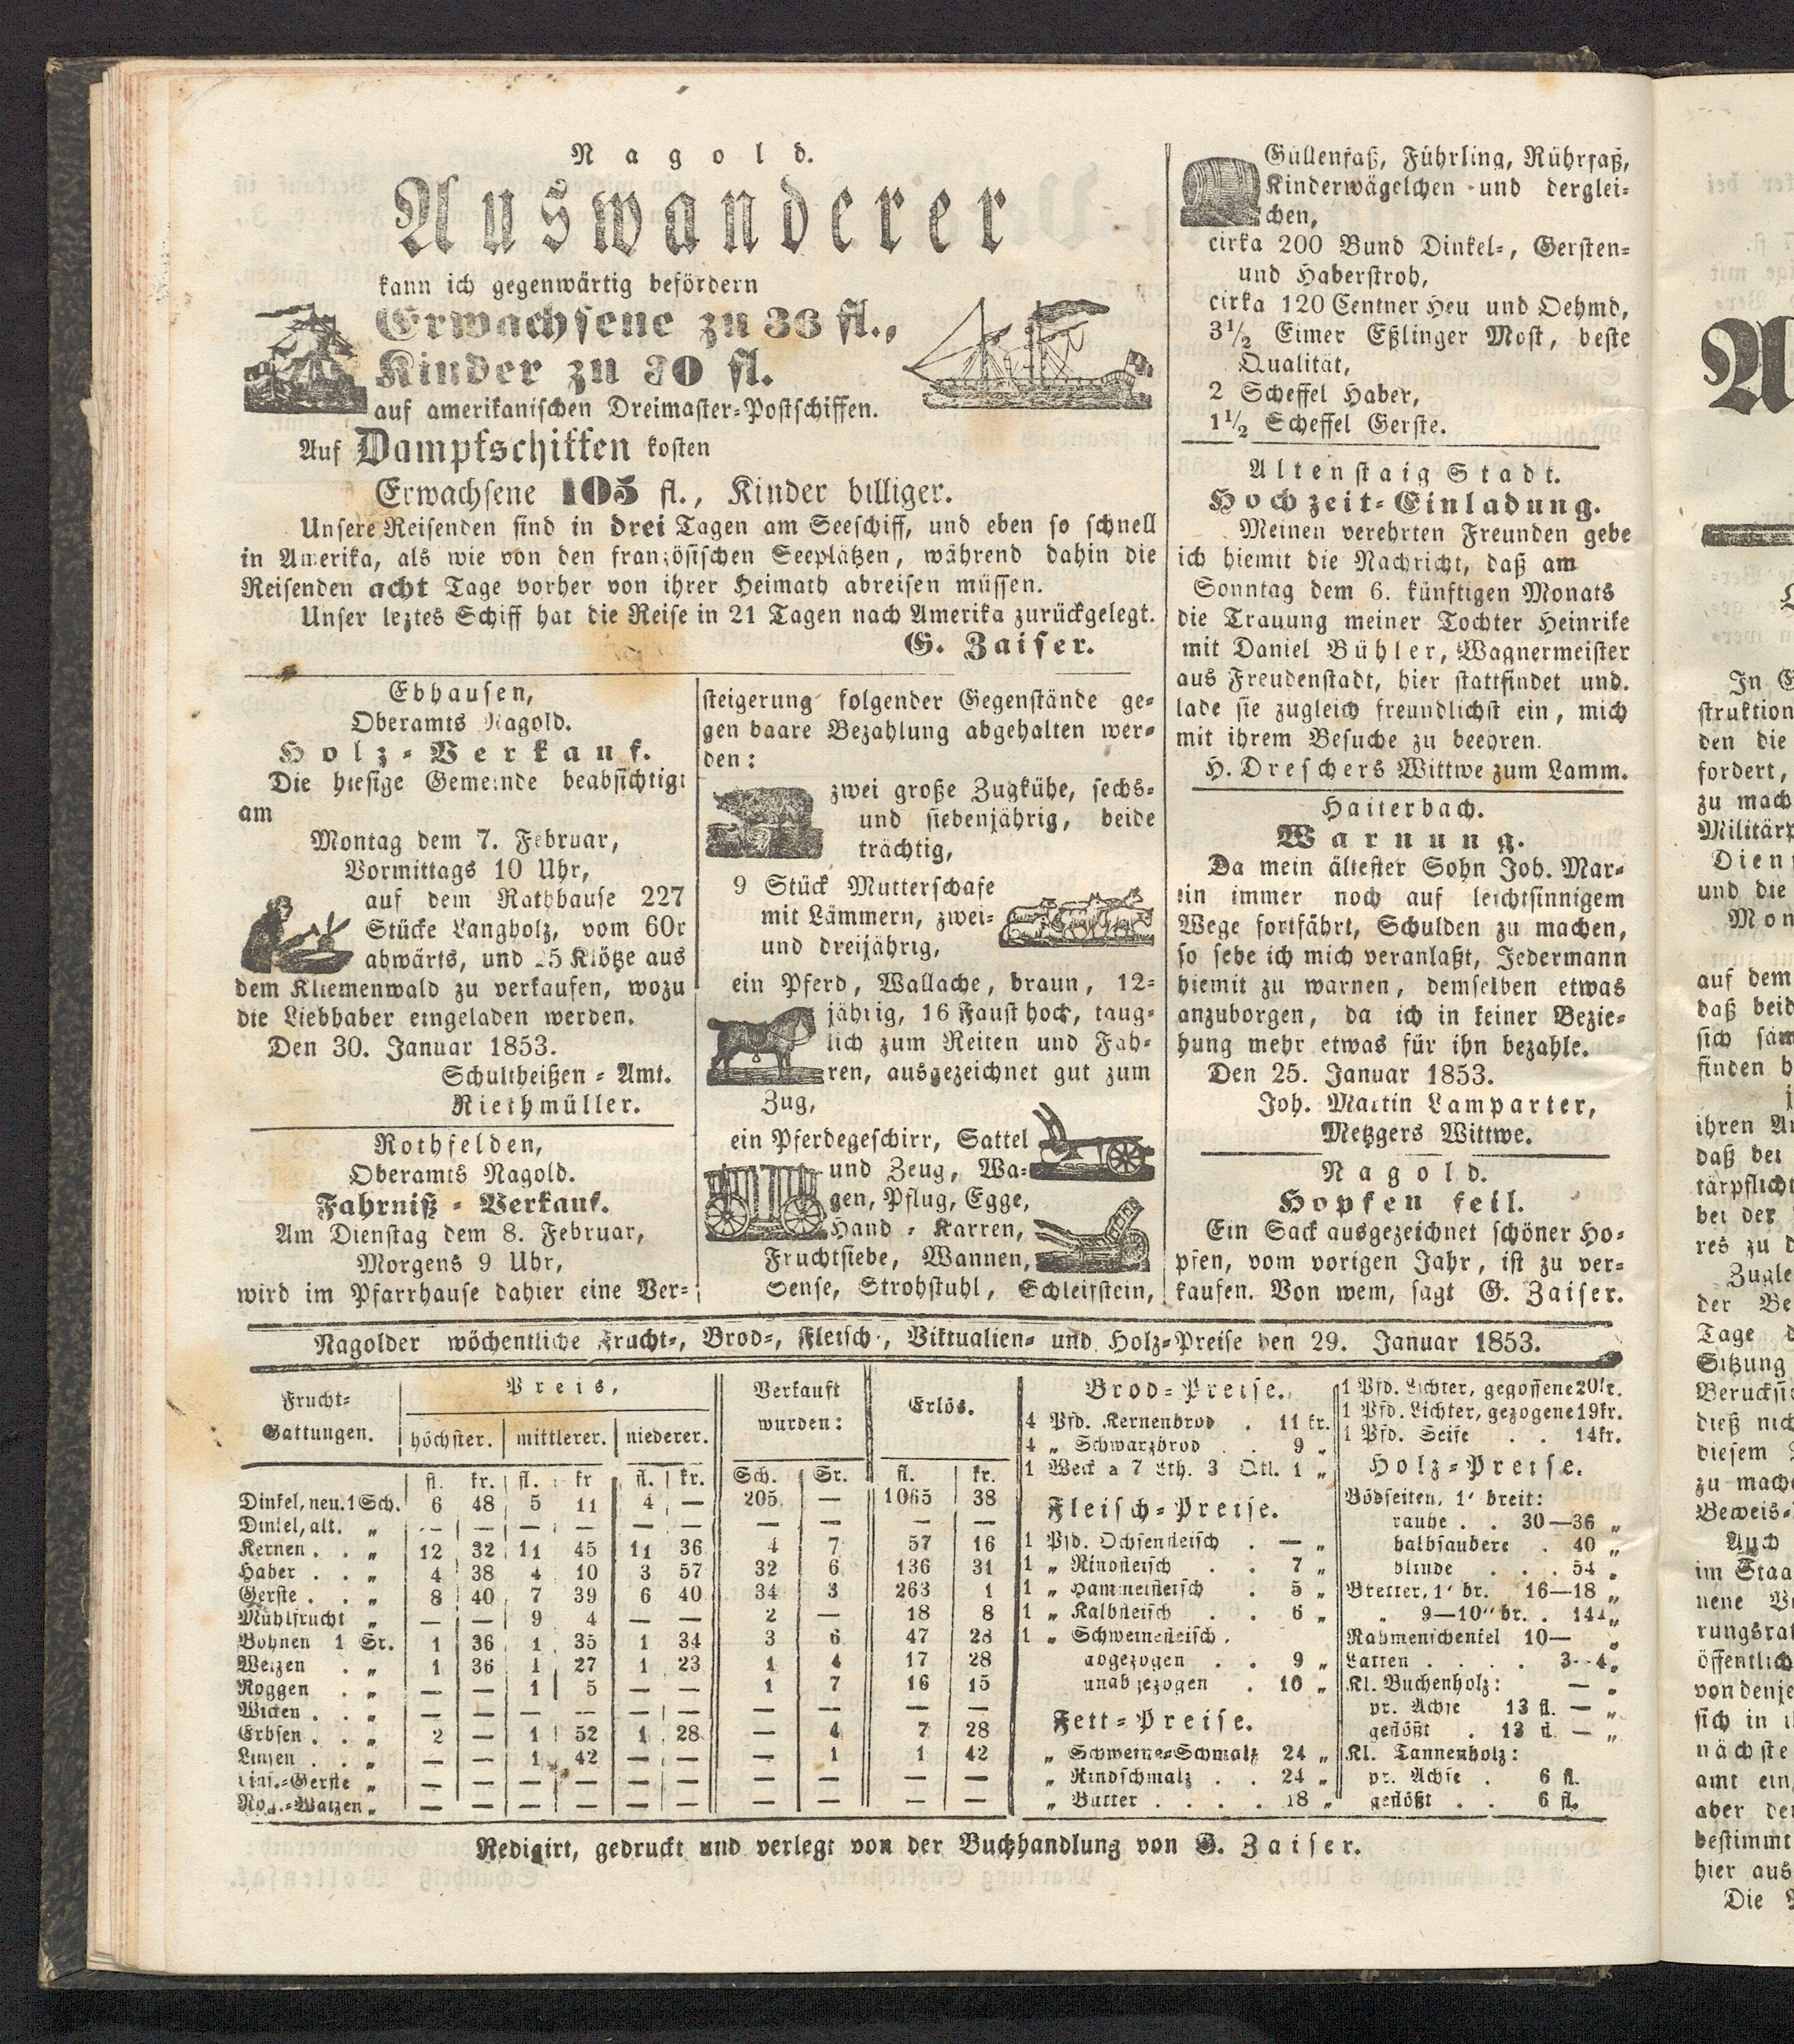 Nagold.
Auswanderer
kann ich gegenwärtig befördern
Erwachsene zu 36 fl.,
Kinder zu 30 fl.
auf amerikanischen Dreimaster-Postschiffen.
Auf Dampfschiffen kosten
Erwachsene 105 fl., Kinder billiger.
Unsere Reisenden sind in drei Tagen am Seeschiff, und eben so schnell
in Amerika, als wie von den französischen Seeplätzen, während dahin die
Reisenden acht Tage vorher von ihrer Heimath abreisen müssen.
Unser leztes Schiff hat die Reise in 21 Tagen nach Amerika zurückgelegt.
G. Zaiser.
Ebhausen,
Oberamts Nagold.
Holz-Verkauf.
Die hiesige Gemeinde beabsichtigt
am
Montag dem 7. Februar,
Vormittags 10 Uhr,
auf dem Rathhause 227
Stücke Langholz, vom 60r
abwärts, und 25 Klötze aus
dem Kliemenwald zu verkaufen, wozu
die Liebhaber eingeladen werden.
Den 30. Januar 1853.
Schultheißen-Amt.
Riethmüller.
Rothfelden,
Oberamts Nagold.
Fahrniß-Verkauf.
Am Dienstag dem 8. Februar,
Morgens 9 Uhr,
wird im Pfarrhause dahier eine Ver-
steigerung folgender Gegenstände ge-
gen baare Bezahlung abgehalten wer-
den:
zwei große Zugkühe, sechs-
und siebenjährig, beide
trächtig,
9 Stück Mutterschafe
mit Lämmern, zwei-
und dreijährig,
ein Pferd, Wallache, braun, 12-
jährig, 16 Faust hoch, taug-
lich zum Reiten und Fah-
ren, ausgezeichnet gut zum
Zug,
ein Pferdegeschirr, Sattel
und Zeug, Wa-
gen, Pflug, Egge,
Hand-Karren,
Fruchtsiebe, Wannen,
Sense, Strohstuhl, Schleifstein,
Güllenfaß, Führling, Rührfaß,
Kinderwägelchen und derglei-
chen,
cirka 200 Bund Dinkel-, Gersten-
und Haberstroh,
cirka 120 Centner Heu und Oehmd,
3½ Eimer Eßlinger Most, beste
Qualität,
2 Scheffel Haber,
1½ Scheffel Gerste.
Altenstaig Stadt.
Hochzeit-Einladung.
Meinen verehrten Freunden gebe
ich hiemit die Nachricht, daß am
Sonntag dem 6. künftigen Monats
die Trauung meiner Tochter Heinrike
mit Daniel Bühler, Wagnermeister
aus Freudenstadt, hier stattfindet und
lade sie zugleich freundlichst ein, mich
mit ihrem Besuche zu beehren.
H. Dreschers Wittwe zum Lamm.
Haiterbach.
Warnung.
Da mein ältester Sohn Joh. Mar-
tin immer noch auf leichtsinnigem
Wege fortfährt, Schulden zu machen,
so sehe ich mich veranlaßt, Jedermann
hiemit zu warnen, demselben etwas
anzuborgen, da ich in keiner Bezie-
hung mehr etwas für ihn bezahle.
Den 25. Januar 1853.
Joh. Martin Lamparter,
Metzgers Wittwe.
Nagold.
Hopfen feil.
Ein Sack ausgezeichnet schöner Ho-
pfen, vom vorigen Jahr, ist zu ver-
kaufen. Von wem, sagt G. Zaiser.
Nagolder wöchentliche Frucht-, Brod-, Fleisch-, Viktualien- und Holz-Preise den 29. Januar 1853.
Frucht-Gattungen. Preis, Verkauft wurden: Erlös.
höchster. mittlerer. niederer.
fl. kr. fl. kr fl. kr. Sch. Sr. fl. kr.
Dinkel, neu. 1 Sch. 6 48 5 11 4 — 205 — 1065 38
Dinkel, alt. „ — — — — — — — — — —
Kernen . . „ 12 32 11 45 11 36 4 7 57 16
Haber . . „ 4 38 4 10 3 57 32 6 136 31
Gerste . . „ 8 40 7 39 6 40 34 3 263 1
Mühlfrucht „ — — 9 4 — — 2 — 18 8
Bohnen 1 Sr. 1 36 1 35 1 34 3 6 47 28
Weizen . „ 1 36 1 27 1 23 1 4 17 28
Roggen . „ — — 1 5 — — 1 7 16 15
Wicken . . „ — — — — — — — — — —
Erbsen . . „ 2 — 1 52 1 28 — 4 7 28
Linsen . . „ — — 1 42 — — — 1 1 42
Lins.-Gerste „ — — — — — — — — — —
Rog.-Waizen „ — — — — — — — — — —
Brod-Preise.
4 Pfd. Kernenbrod . 11 kr.
4 „ Schwarzbrod . . 9 „
1 Weck a 7 Lth. 3 Qtl. 1 „
Fleisch-Preise.
1 Pfd. Ochsenfleisch . — „
1 „ Rindfleisch . . 7 „
1 „ Hammelfleisch . 5 „
1 „ Kalbfleisch . . 6 „
1 „ Schweinefleisch,
abgezogen . . 9 „
unabgezogen . 10 „
Fett-Preise.
„ Schweine-Schmalz 24 „
„ Rindschmalz . . 24 „
„ Butter . . . . 18 „
1 Pfd. Lichter, gegossene 20kr.
1 Pfd. Lichter, gezogene 19kr.
1 Pfd. Seife . . 14kr.
Holz-Preise.
Bödseiten, 1' breit:
rauhe . . 30—36 „
halbsaubere . 40 „
blinde . . . 54 „
Bretter, 1' br. 16—18 „
„ 9—10" br. .
Rahmenschenkel 10— „
Latten . . . . 3--4 „
Kl. Buchenholz: — „
pr. Achse 13 fl. — „
geflößt . 13 fl. — „
Kl. Tannenholz:
pr. Achse . 6 fl.
geflößt . . 6 fl.
Redigirt, gedruckt und verlegt von der Buchhandlung von G. Zaiser.
A
In
struktion
den die
fordert,
zu mach
Militärp
Dien
und die
Mon
auf dem
daß beid
sich säm
finden
ihren
daß bei
tärpflicht
bei der
res zu
Zugle
der Be
Tage
Sitzung
dieß nich
diesem
zu mache
Beweis-
Auch
im Staa
nene
rungsrat
öffentlich
von denje
sich in
nächste
amt ein
aber der
bestimmt
hier aus
Die